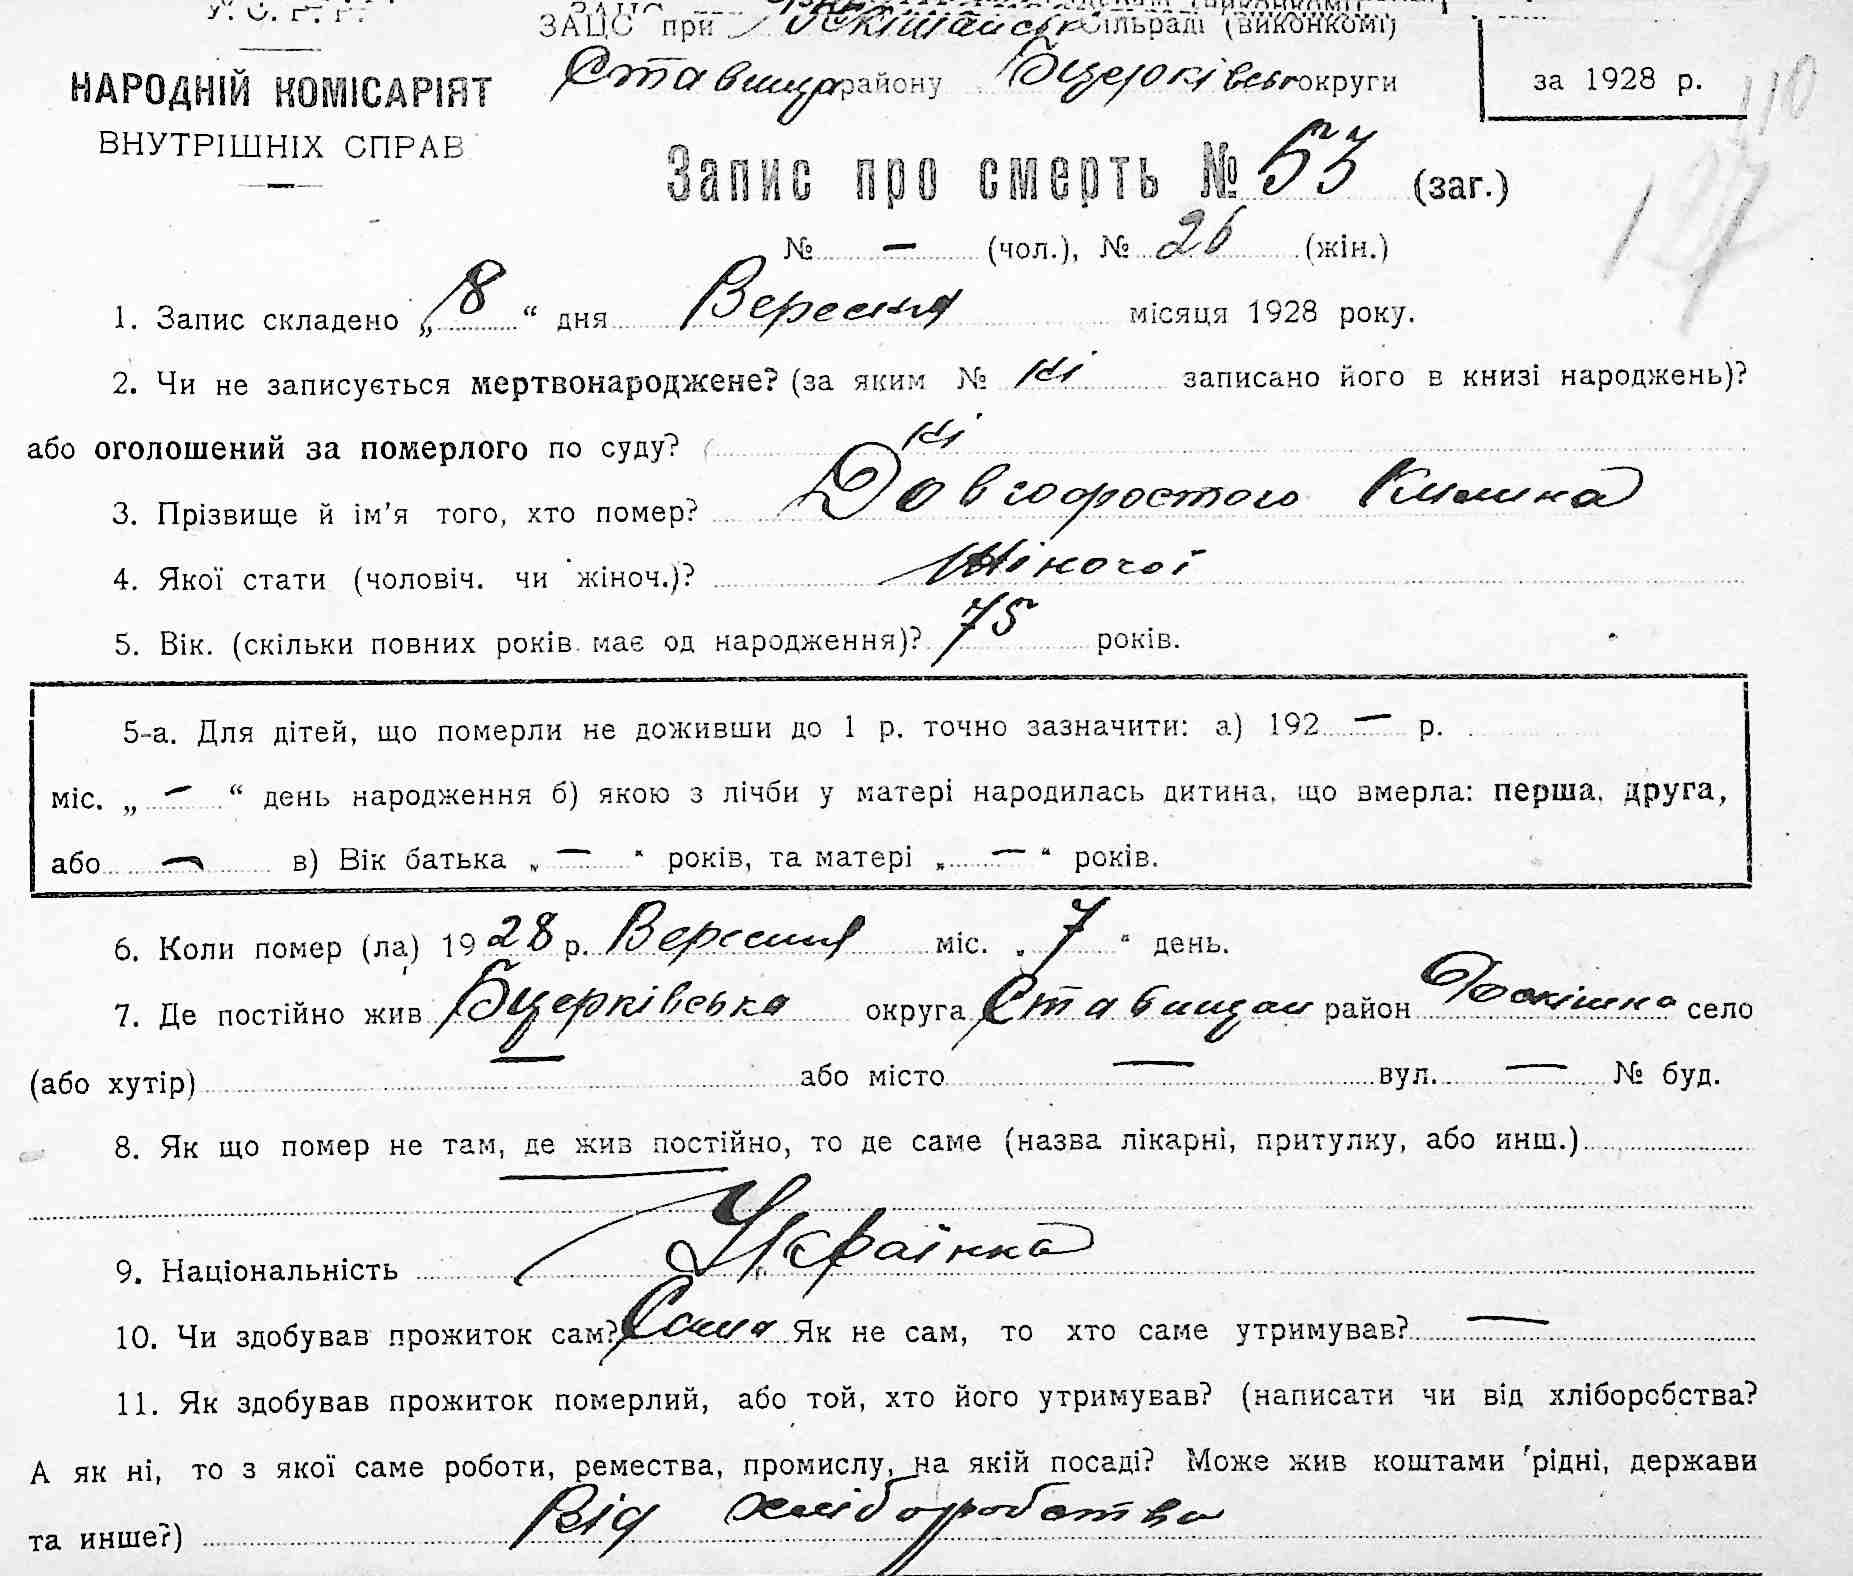 У. С. Р. Р.
ЗАЦС при сільраді (виконкомі)
Ставища району Бцерківськ округи
за 1928 р.
110
НАРОДНІЙ КОМІСАРІЯТ
ВНУТРІШНІХ СПРАВ
127
Запис про смерть № 53 (заг.)
№ — (чол.), № 26 (жін.)
1. Запис складено „ 8 “ дня Вересня місяця 1928 року.
2. Чи не записується мертвонароджене? (за яким № ні записано його в книзі народжень)?
або оголошений за померлого по суду? ні
3. Прізвище й ім'я того, хто помер? Довгофостого Килина
4. Якої стати (чоловіч. чи жіноч.)? Жіночої
5. Вік. (скільки повних років має од народження)? 75 років.
5-а. Для дітей, що померли не доживши до 1 р. точно зазначити: а) 192 — р.
міс. „ — “ день народження б) якою з лічби у матері народилась дитина, що вмерла: перша, друга,
або — в) Вік батька „ — “ років, та матері „ — “ років.
6. Коли помер (ла) 1928 р. Вересня міс. „ 7 “ день.
7. Де постійно жив Бцерківська округа Ставищан район село
(або хутір) — або місто — вул. — № буд.
8. Як що помер не там, де жив постійно, то де саме (назва лікарні, притулку, або инш.)
—
9. Національність Українка
10. Чи здобував прожиток сам? Сама Як не сам, то хто саме утримував? —
11. Як здобував прожиток померлий, або той, хто його утримував? (написати чи від хліборобства?
А як ні, то з якої саме роботи, ремества, промислу, на якій посаді? Може жив коштами рідні, держави
та инше?) Від хліборобства